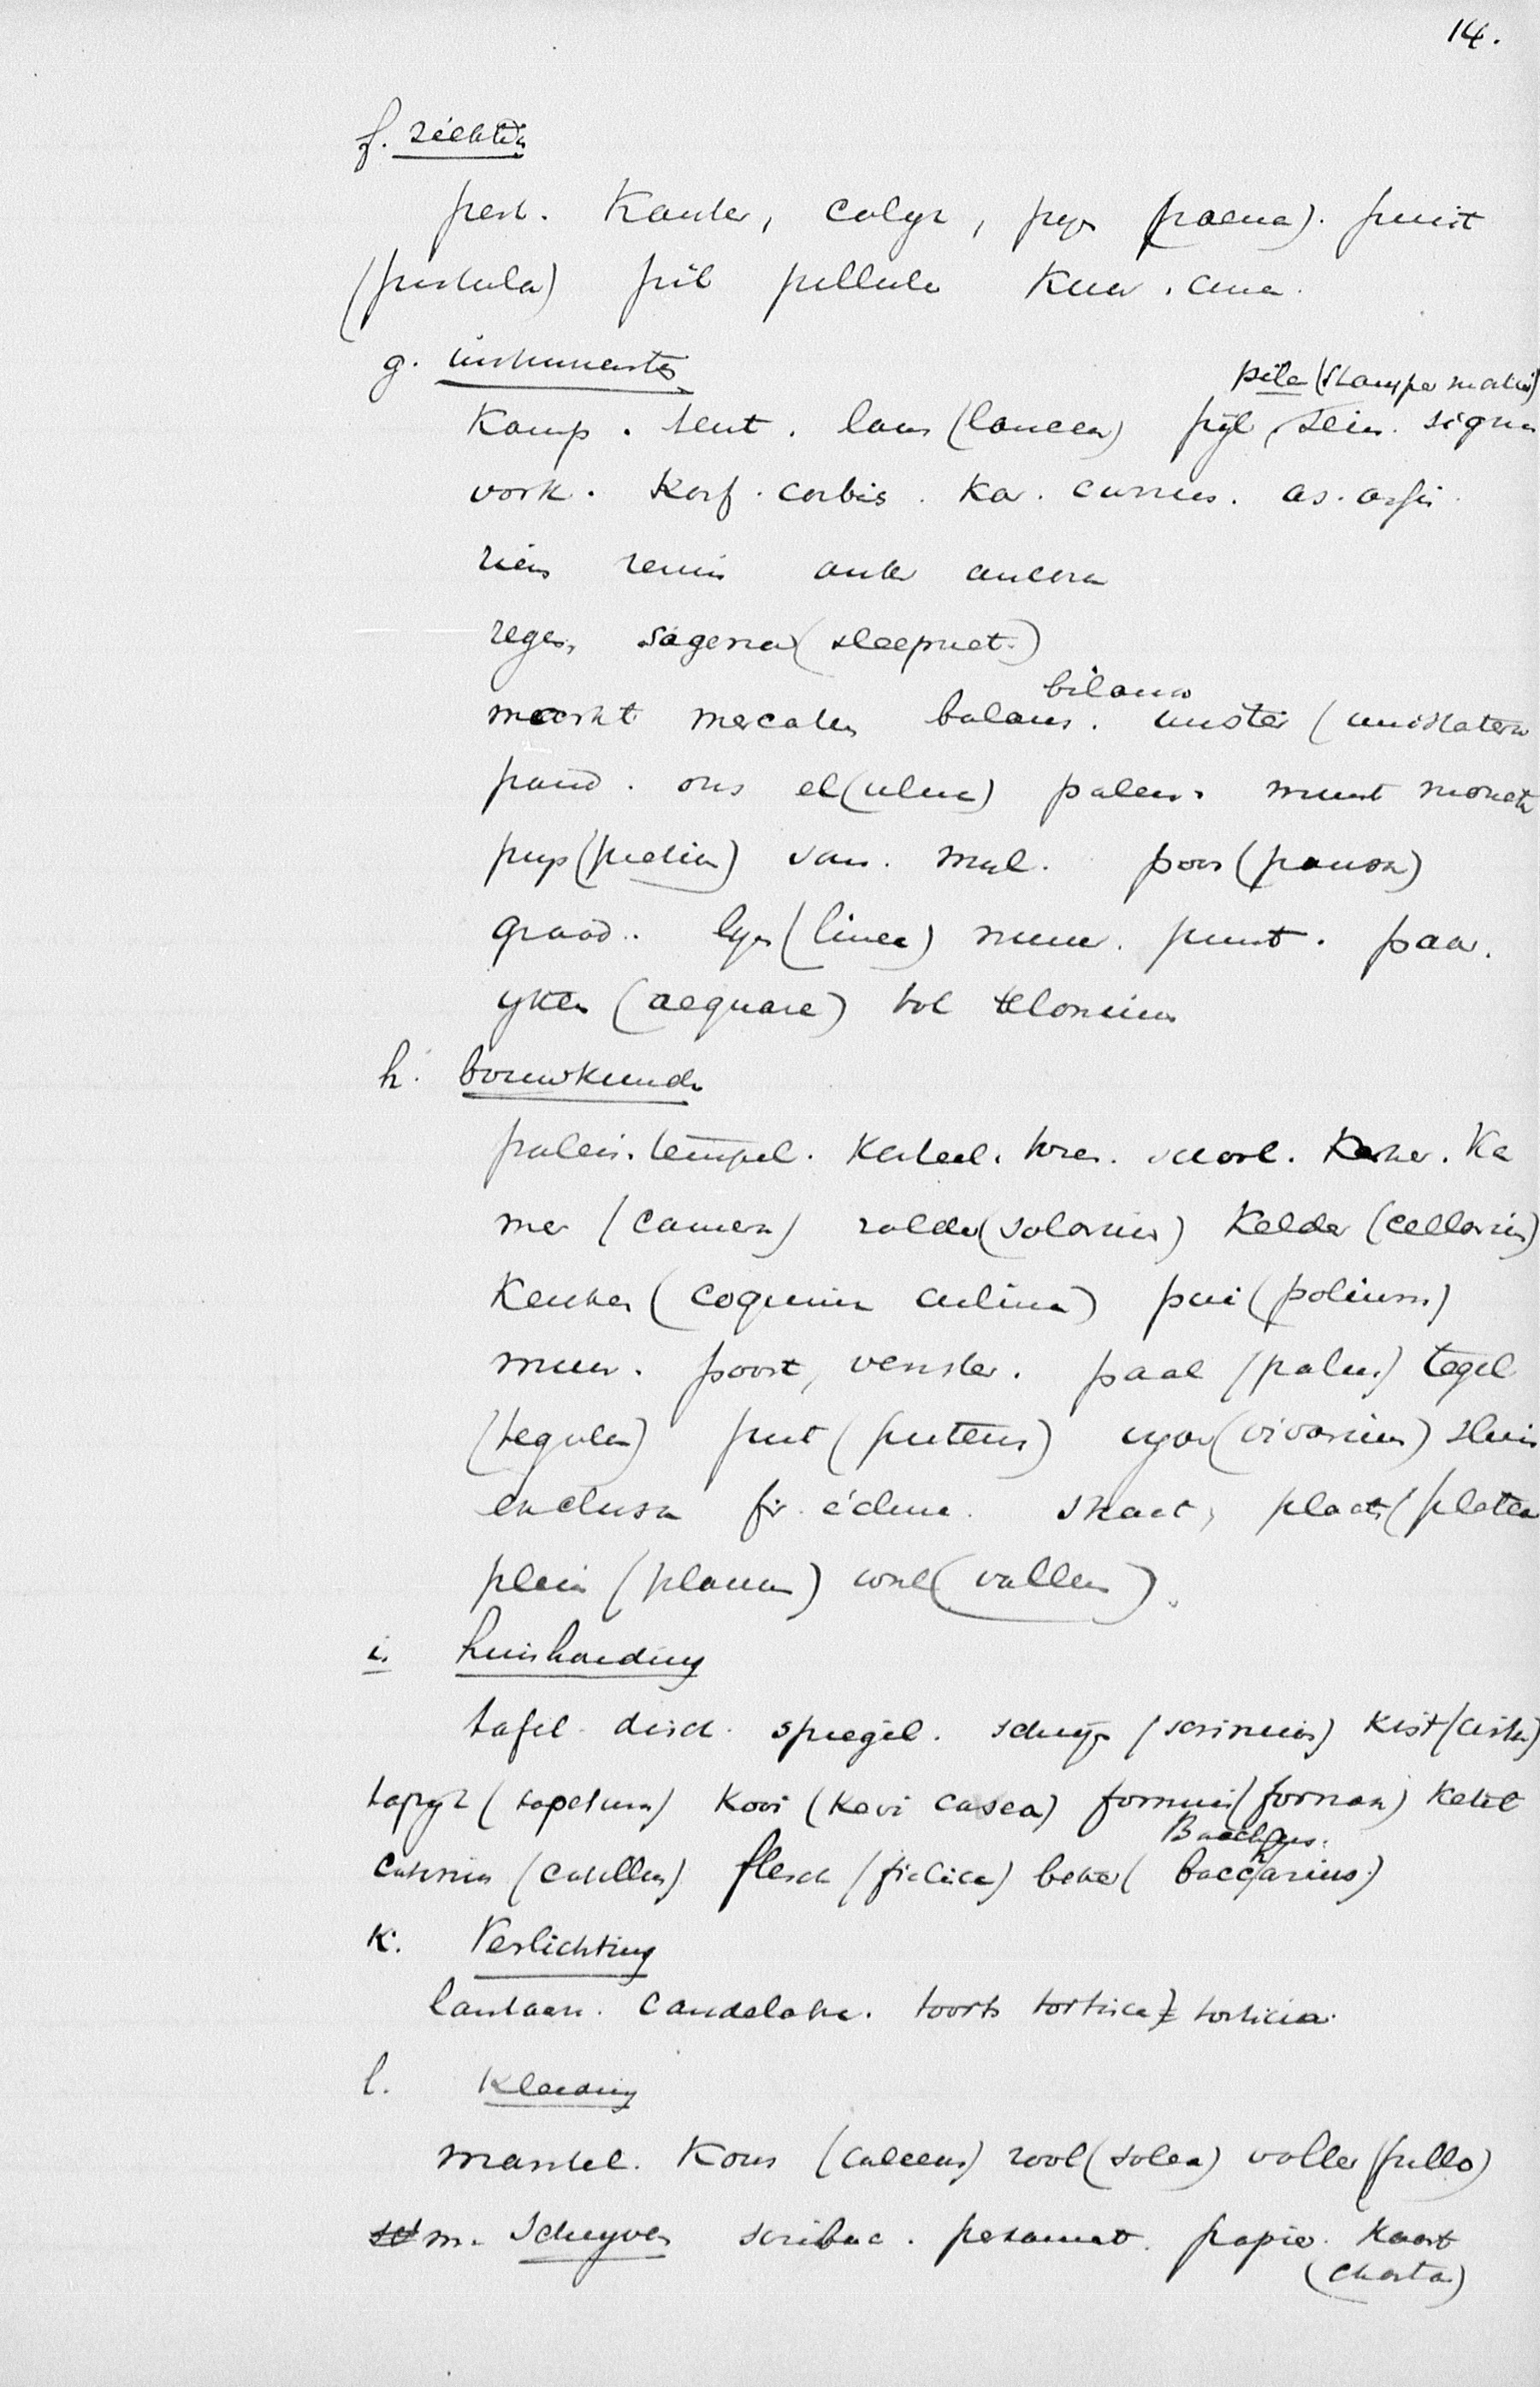 14.
f. ziekten
pest. Kanker, colyx, pyn (poena). puist
(pustula) pil pillula Kuur. cura.
g. instrumenten
pila (stamper matrijs)
Kamp. tent. lans (lancea) pijl, sein. signum
vork. Korf. corbis. Kar. currus. as. assis
riem remis anker ancora
zegen, sagena (sleepnet.)
bilanx
markt mercatus balans. unster (unistatera
pond. ons el (ulna) palen. munt moneta
prys (pretium) van. myl. poos (pausa)
graad. lyn (linea) muur. punt. paar.
yken (aequare) tol telonium
h. bouwkunde
paleis. tempel. Kasteel. toren. Kerker. Ka
mer (camera) zolder (solarium) Kelder (cellarium)
Keuken (coquina culina) pui (polium)
muur. poort, venster. paal (palus) tegel
(tegula) put (puteus) vyver (vivarium) sluis
exclusa fr. écluse. straat, plaats (platea
plein (planum) wal (vallum).
i. huishouding
tafel. disch. spiegel. schryn (scrinium) kist (cista)
tapyt (tapetum) Kooi (Kevi cavea) fornuis (fornax) Ketel
catinus (catillus) flesch (fialica) beker (baccharius)
Bacchus.
K. Verlichting
lantaarn. Candelaber. toorts tortica torticia.
l. Kleeding
mantel. Kous (calceus) zool (solea) voller (fullo)
m. Schryven scribere. perkament. papier. Kaart
(charta)